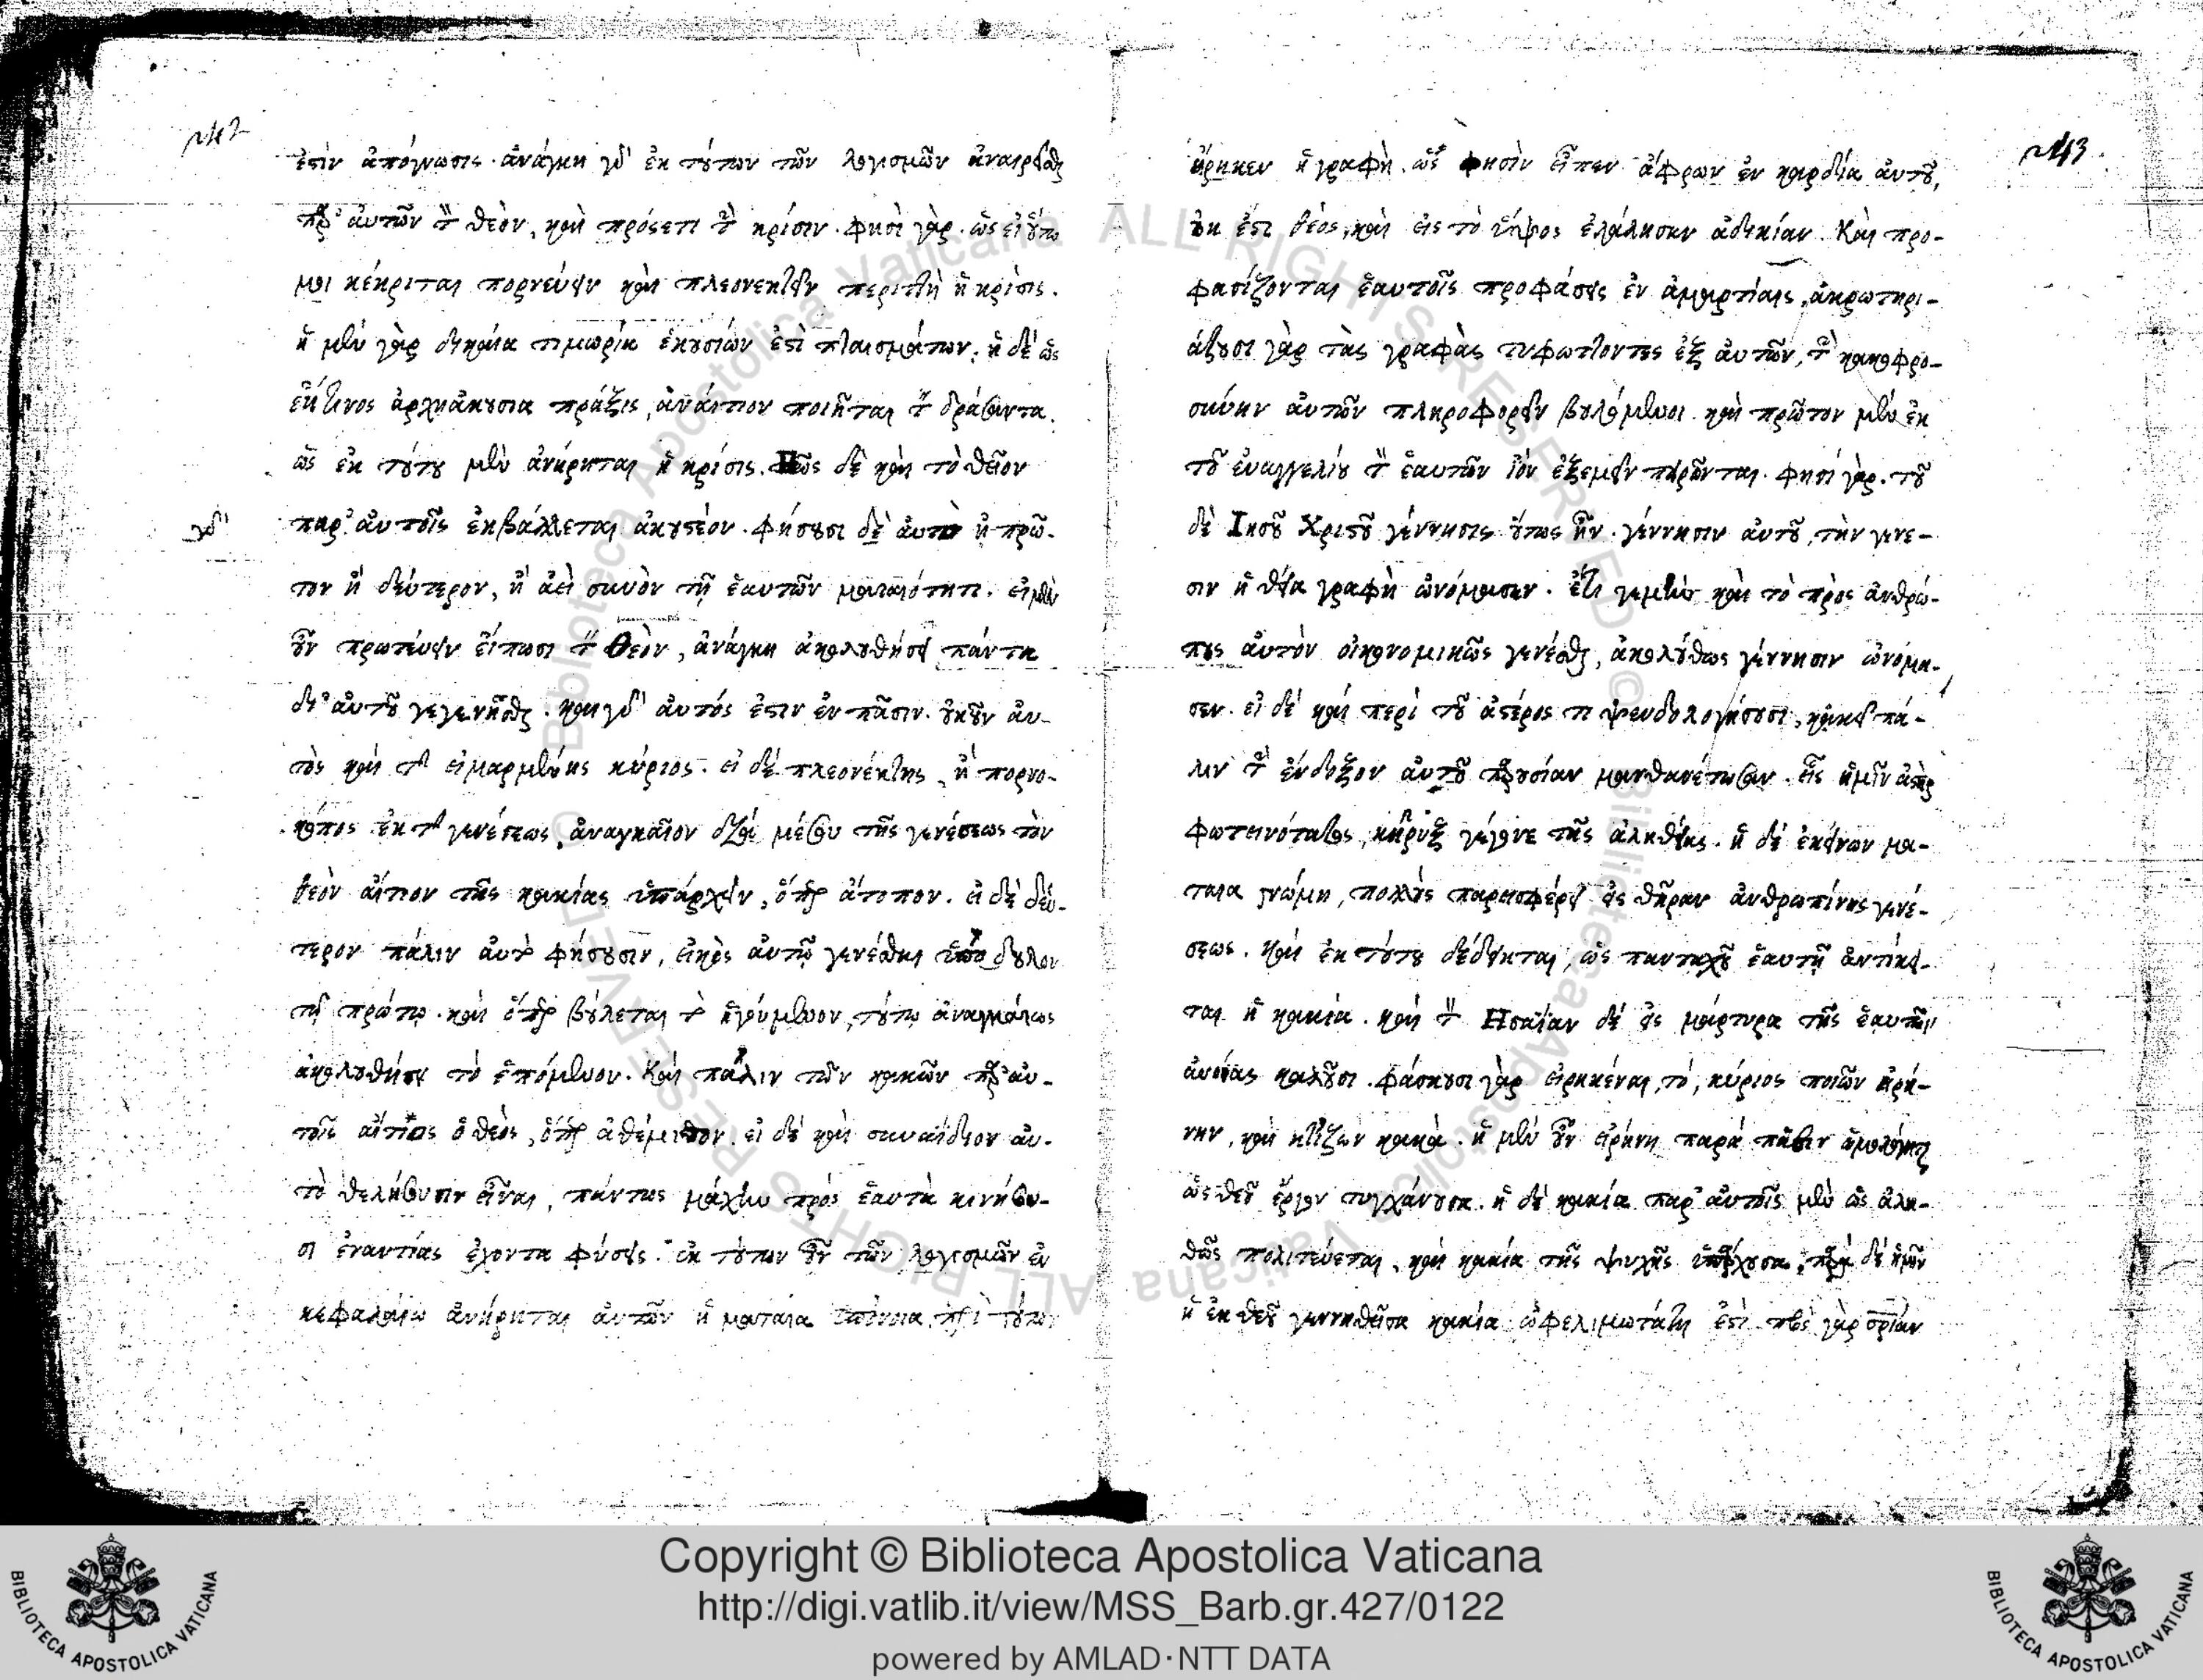 242
ἐστὶν ἀπόγνωσις. ἀνάγκη γὰρ ἐκ τούτων τῶν λογισμῶν ἀναιρεῖσθαι
παρ' αὐτῶν τὸν θεόν, καὶ πρόσετι τὴν κρίσιν. φησὶ γὰρ. ὡς εἰ οὕτω
μοι κέκριται πορνεύειν καὶ πλεονεκτεῖν περιττὴ ἡ κρίσις.
ἡ μὲν γὰρ δικαία τιμωρία ἑκουσίων ἐστὶ πταισμάτων, ἡ δὲ ὡς
ἔκ τινος ἀρχῆς ἀκουσία πρᾶξις, ἀναίτιον ποιεῖται τὸν δράσαντα.
ὡς ἐκ τούτου μὲν ἀνῄρηται ἡ κρίσις. Πῶς δὲ καὶ τὸ θεῖον
παρ' αὐτοῖς ἐκβάλλεται ἀκουστέον. φήσουσι δὲ αὐτὸ ἢ πρῶ-
τον ἢ δεύτερον, ἢ ἀεὶ συνὸν τῇ ἑαυτῶν ματαιότητι. εἰ μὲν
οὖν πρωτεύειν εἴπωσι τὸν Θεὸν, ἀνάγκη ἀκολουθήσει πάντα
δι' αὐτοῦ γεγενῆσθαι. καὶ γὰρ αὐτός ἐστιν ἐν πᾶσιν. οὐκοῦν αὐ-
τὸς καὶ τῆς εἱμαρμένης κύριος. εἰ δὲ πλεονέκτης, ἢ πορνο-
κόπος ἐκ τῆς γενέσεως, ἀναγκαῖον διὰ μέσου τῆς γενέσεως τὸν
θεὸν αἴτιον τῆς κακίας ὑπάρχειν, ὅπερ ἄτοπον. εἰ δὲ δεύ-
τερον πάλιν αὐτὸ φήσουσιν, εἰκὸς αὐτῷ γενέσθαι δοῦλον
τῷ πρώτῳ. καὶ ὅπερ βούλεται τὸ ἡγούμενον, τούτῳ ἀναγκαίως
ἀκολουθήσει τὸ ἑπόμενον. Καὶ πάλιν τῶν κακῶν παρ' αὐ-
τοῖς αἴτιος ὁ θεὸς, ὅπερ ἀθέμιτον. εἰ δὲ καὶ συναΐδιον αὐ-
τὸ θελήσουσιν εἶναι, πάντως μάχην πρὸς ἑαυτὰ κινήσου-
σι ἐναντίας ἔχοντα φύσεις. ἐκ τούτων οὖν τῶν λογισμῶν ἐν
κεφαλαίῳ ἀνῄρηται αὐτῶν ἡ ματαία ὑπόνοια, περὶ τούτων
243
εἴρηκεν ἡ γραφὴ. ὡς φησὶν εἶπεν ἄφρων ἐν καρδίᾳ αὐτοῦ,
οὐκ ἔστι θεός, καὶ εἰς τὸ ὕψος ἐλάλησαν ἀδικίαν. Καὶ προ-
φασίζονται ἑαυτοῖς προφάσεις ἐν ἁμαρτίαις, ἀκρωτηρι-
άζουσι γὰρ τὰς γραφὰς τυφώττοντες ἐξ αὐτῶν, τὴν κακοφρο-
σύνην αὐτῶν πληροφορεῖν βουλόμενοι. καὶ πρῶτον μὲν ἐκ
τοῦ εὐαγγελίου τὸν ἑαυτῶν ἰὸν ἐξεμεῖν πειρῶνται. φησὶ γὰρ. τοῦ
δὲ Ἰησοῦ Χριστοῦ γέννησις οὕτως ἦν. γέννησιν αὐτοῦ, τὴν γένε-
σιν ἡ θεία γραφὴ ὠνόμασεν. ἔτι γεμὴν καὶ τὸ πρὸς ἀνθρώ-
πους αὐτὸν οἰκονομικῶς γενέσθαι, ἀκολούθως γέννησιν ὠνόμα-
σεν. εἰ δὲ καὶ περὶ τοῦ ἀστέρος τι ψευδολογήσουσι, κἀκεῖ πά-
λιν τὴν ἔνδοξον αὐτοῦ παρουσίαν μανθανέτωσαν. εἷς ἡμῖν ἀστὴρ
φωτεινότατος, κήρυξ γέγονε τῆς ἀληθείας. ἡ δὲ ἐκείνων μα-
ταία γνώμη, πολλοὺς παρεισφέρει εἰς θήραν ἀνθρωπίνης γενέ-
σεως. καὶ ἐκ τούτου δέδεικται, ὡς πανταχοῦ ἑαυτῇ ἀντίκει-
ται ἡ κακία. καὶ τὸν Ησαΐαν δὲ εἰς μάρτυρα τῆς ἑαυτῶν
ἀνοίας καλοῦσι. φάσκουσι γὰρ εἰρηκέναι, τὸ, κύριος ποιῶν εἰρή-
νην, καὶ κτίζων κακά. ἡ μὲν οὖν εἰρήνη παρὰ πᾶσιν ὡμολόγηται
ὡς θεοῦ ἔργον τυγχάνουσα. ἡ δὲ κακία παρ' αὐτοῖς μὲν ὡς ἀλη-
θῶς πολιτεύεται, καὶ κακία τῆς ψυχῆς ὑπάρχουσα, παρὰ δὲ ἡμῖν
ἡ ἐκ θεοῦ γεννηθεῖσα κακία ὠφελιμωτάτη ἐστὶ πρὸς γὰρ σωτηρίαν
Copyright © Biblioteca Apostolica Vaticana
http://digi.vatlib.it/view/MSS_Barb.gr.427/0122
powered by AMLAD·NTT DATA
BIBLIOTECA APOSTOLICA VATICANA
BIBLIOTECA APOSTOLICA VATICANA